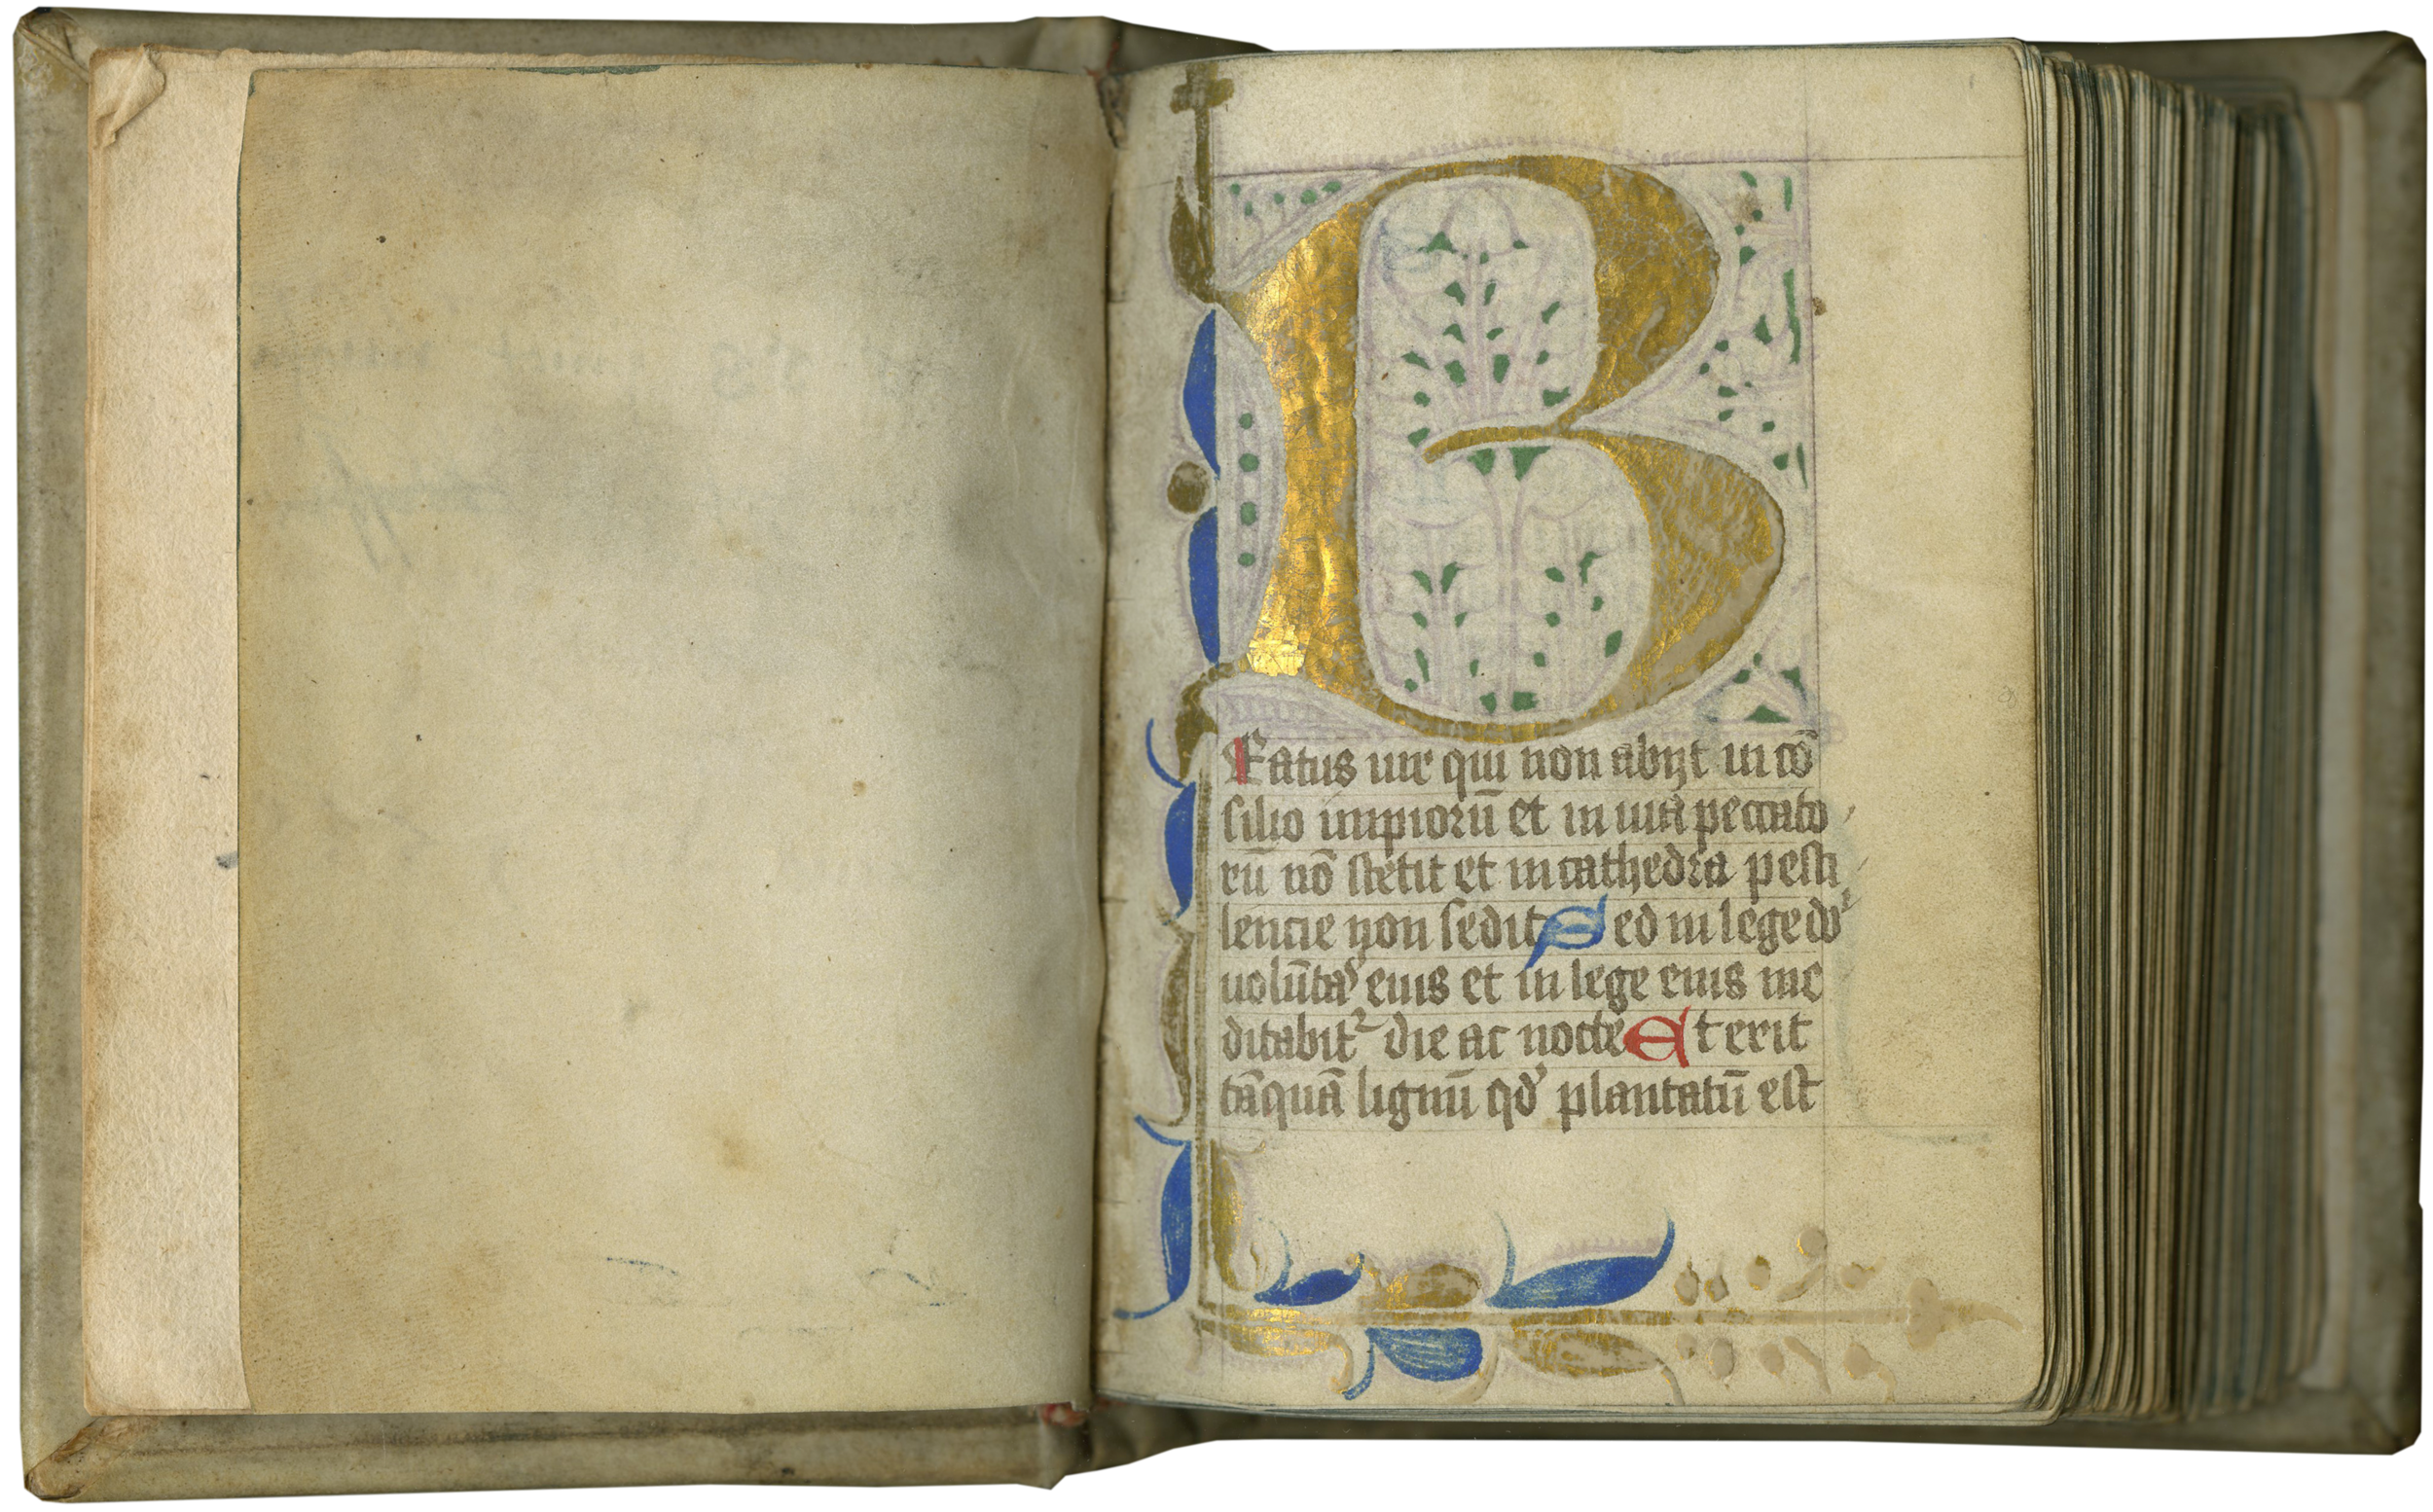 B
Eatus uir qui non abijt in cō
silio impiorū et in uia peccato
rū nō stetit et in cathedra pesti
lencie non sedit Sed in lege do᷑
uolūta᷒ eius et in lege eius me
ditabit᷑ die ac nocte Et erit
tāquā lignū qd' plantatū est